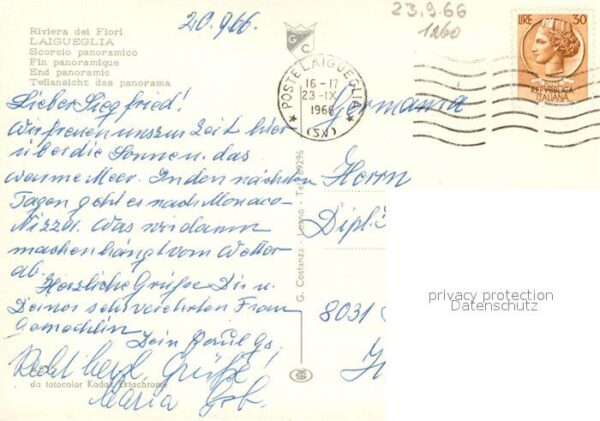 20.9.66.
23.9.66
1260
Riviera dei Fiori
LAIGUEGLIA
Scorcio panoramico
Fin panoramique
End panoramic
Teilansicht das panorama
G C
POSTE LAIGUEGLIA
16-17
23-IX
1966
(SV)
LIRE 30
REPUBBLICA
ITALIANA
Lieber Siegfried!
Wir freuen uns zur Zeit hier
über die Sonne u. das
warme Meer. In den nächsten
Tagen geht es nach Monaco-
Nizza. Was wir dann
machen hängt vom Wetter
ab.
Herzliche Grüße Dir u.
Deiner sehr verehrten Frau
Gemahlin
Dein
Recht herzl. Grüße
Maria
da fotocolor Kodak Ektachrome
G. Costanza - - Tel. 69296
Germania
Herrn
Dipl.
8031
privacy protection
Datenschutz